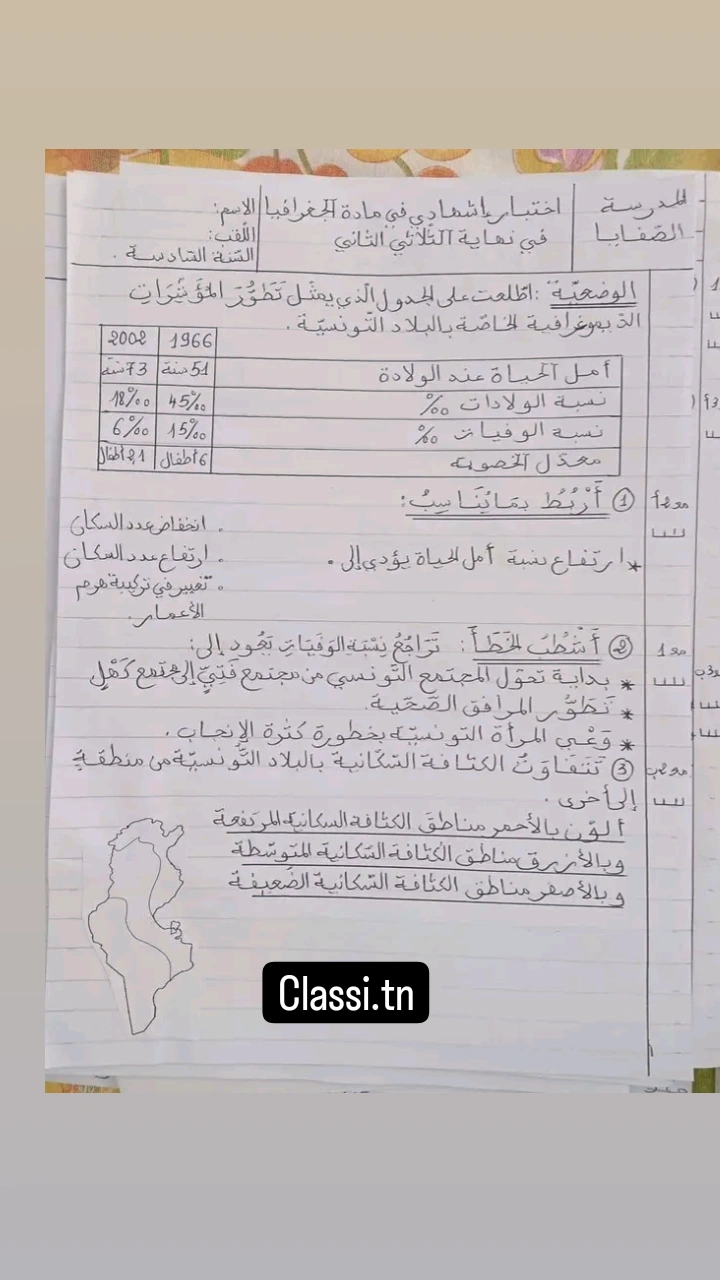 المدرسة
الصفايا
اختبار إشهادي في مادة الجغرافيا
في نهاية الثلاثي الثاني
الاسم:
اللقب:
السّنة السّادسة.
الوضعيّة: اطّلعت على الجدول الذي يمثّل تَطَوُّرَ المُؤَشِّرَاتِ
الديموغرافية الخاصّة بالبلاد التّونسيّة.
1966 2002
أمل الحياة عند الولادة 51 سنة 73 سنة
نسبة الولادات ‰ 45‰ 18‰
نسبة الوفيات ‰ 15‰ 6‰
معدّل الخصوبة 6 أطفال 2,1 أطفال
مع 2 أ
① أَرْبُطُ بِمَا يُنَاسِبُ:
* ارتفاع نسبة أمل الحياة يؤدي إلى.
. انخفاض عدد السكان
. ارتفاع عدد السكان
. تغيير في تركيبة هرم
الأعمار.
مع 1
② أَشْطُبُ الخَطَأَ: تَرَاجُعُ نِسْبَةِ الوَفَيَاتِ يَعُودُ إلى:
* بداية تحوّل المجتمع التّونسي من مجتمع فَتِيٍّ إلى مجتمع كَهْلٍ
* تَطَوُّر المرافق الصّحّية.
* وَعْي المرأة التونسيّة بخطورة كثرة الإنجاب.
③ تَتَفَاوَتُ الكثافة السّكّانية بالبلاد التّونسيّة من منطقةٍ
إلى أخرى.
مع 2 ب
ألوّن بالأحمر مناطق الكثافة السكانية المرتفعة
وبالأزرق مناطق الكثافة السّكانية المتوسّطة
وبالأصفر مناطق الكثافة السّكانية الضّعيفة
Classi.tn